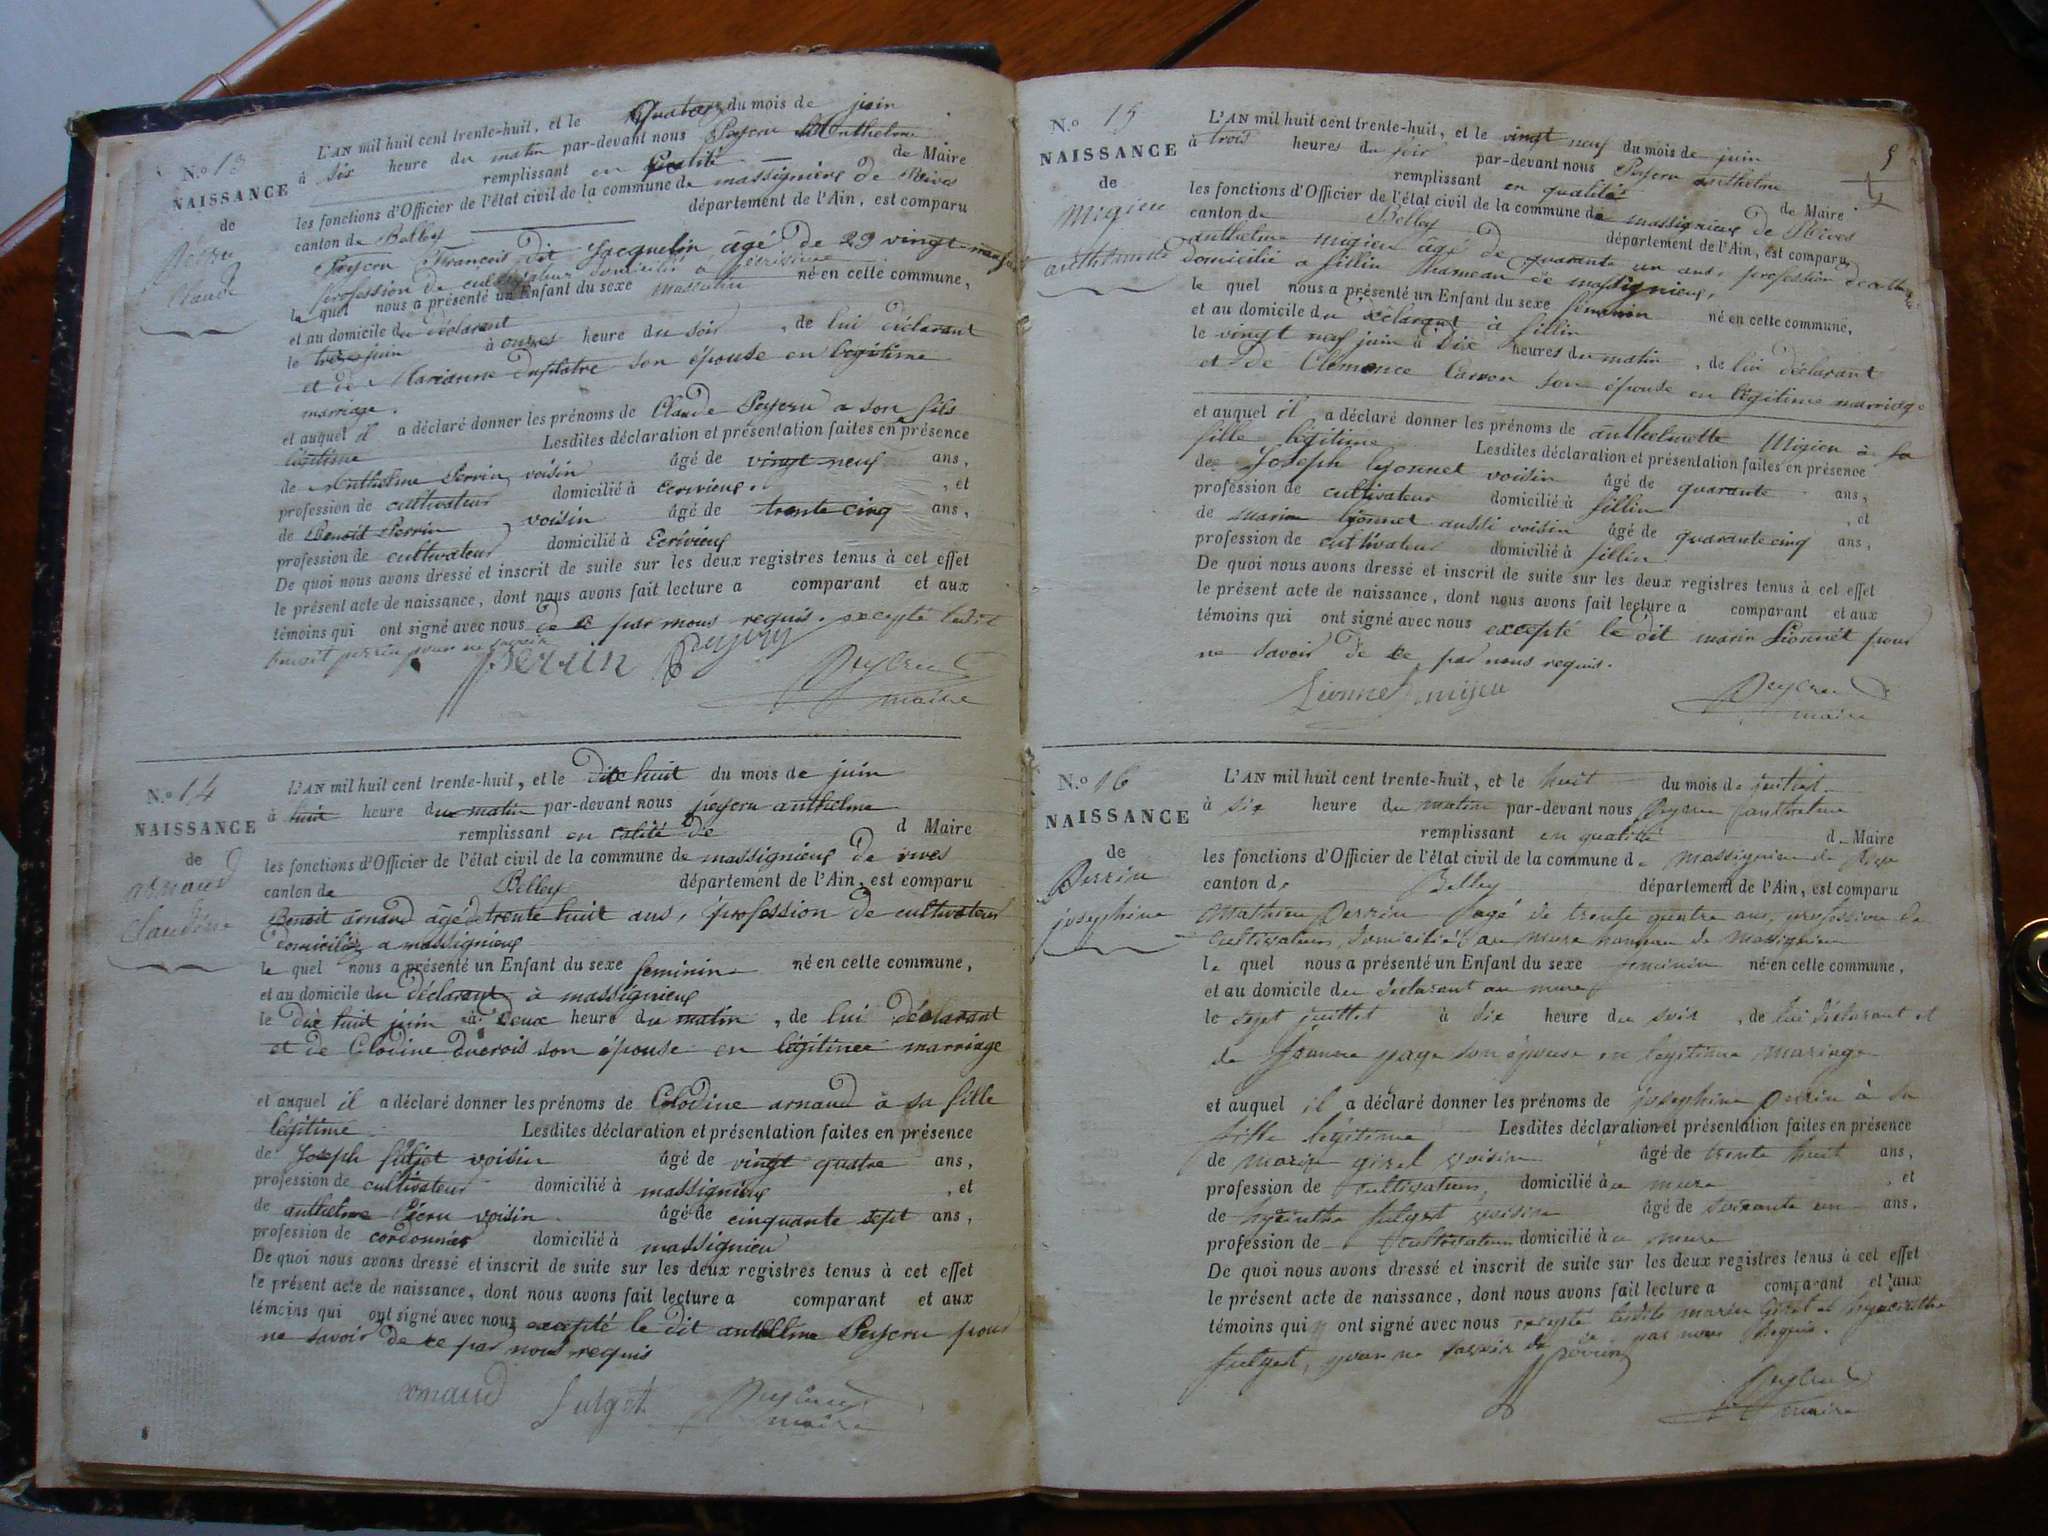 N.º 13
NAISSANCE
de
Peÿcru
Claude
L'AN mil huit cent trente-huit, et le Quatorze du mois de juin
à six heure du matin par-devant nous Peÿcru Anthelme
remplissant en qualité de Maire
les fonctions d'Officier de l'état civil de la commune de massignieux de Rives
canton de Belley département de l'Ain, est comparu
Peÿcru François dit Jacquelin âgé de 29 vingt neuf ans
profession de cultivateur domicilié à
le quel nous a présenté un Enfant du sexe masculin né en cette commune,
et au domicile du déclarant
le treize juin à onzes heure du soir, de lui déclarant
et de Marianne Duplatre son épouse en legitime
marriage.
et auquel il a déclaré donner les prénoms de Claude Peÿcru a son fils
légitime Lesdites déclaration et présentation faites en présence
de Anthelme Perrin voisin âgé de vingt neuf ans,
profession de cultivateur domicilié à Ecrivieux. , et
de Benoit Perrin voisin âgé de trente cinq ans,
profession de cultivateur domicilié à Ecrivieux
De quoi nous avons dressé et inscrit de suite sur les deux registres tenus à cet effet
le présent acte de naissance, dont nous avons fait lecture a comparant et aux
témoins qui ont signé avec nous de ce par nous requis. excepté ledit
benoit perrin pour ne savoir
Perrin Peÿcru Peÿcru
maire
N.º 14
NAISSANCE
de
arnaud
Claudine
L'AN mil huit cent trente-huit, et le dix huit du mois de juin
à huit heure du matin par-devant nous peÿcru anthelme
remplissant en calité de d Maire
les fonctions d'Officier de l'état civil de la commune de massignieux de rives
canton de Belley département de l'Ain, est comparu
Benoit arnaud âgé de trente huit ans, profession de cultivateur
domicilié a massignieux
le quel nous a présenté un Enfant du sexe feminin né en cette commune,
et au domicile du déclarant à massignieux
le dix huit juin à deux heure du matin, de lui déclarant
et de Clodine ducrois son épouse en légitime marriage
et auquel il a déclaré donner les prénoms de Clodine arnaud à sa fille
légitime Lesdites déclaration et présentation faites en présence
de Joseph fulget voisin âgé de vingt quatre ans,
profession de cultivateur domicilié à massignieux , et
de anthelme Pécru voisin âgé de cinquante sept ans,
profession de cordonnier domicilié à massignieu
De quoi nous avons dressé et inscrit de suite sur les deux registres tenus à cet effet
le présent acte de naissance, dont nous avons fait lecture a comparant et aux
témoins qui ont signé avec nous excepté le dit anthelme Peÿcru pour
ne savoir de ce par nous requis
arnaud fulget Peÿcru
maire
N.º 15
NAISSANCE
de
migieu
anthelmette
5
L'AN mil huit cent trente-huit, et le vingt neuf du mois de juin
à trois heures du soir par-devant nous Peÿcru anthelme
remplissant en qualité de Maire
les fonctions d'Officier de l'état civil de la commune de massignieux de Rives
canton de Belley département de l'Ain, est comparu
anthelme migieu âgé de quarante un ans, profession de
domicilié a fillin hameau de massignieux,
le quel nous a présenté un Enfant du sexe féminin né en cette commune,
et au domicile du déclarant à fillin
le vingt neuf juin à dix heures du matin, de lui déclarant
et de Clémence son épouse en légitime marriage
et auquel il a déclaré donner les prénoms de anthelmette Migieu à sa
fille légitime Lesdites déclaration et présentation faites en présence
de Joseph lyonnet voisin âgé de quarante ans,
profession de cultivateur domicilié à fillin , et
de marin lyonnet aussi voisin âgé de quarante cinq ans,
profession de cultivateur domicilié à fillin
De quoi nous avons dressé et inscrit de suite sur les deux registres tenus à cet effet
le présent acte de naissance, dont nous avons fait lecture a comparant et aux
témoins qui ont signé avec nous excepté le dit marin Lionnet pour
ne savoir de ce par nous requis.
Lionnet migieu Peÿcru
maire
N.º 16
NAISSANCE
de
Perrin
josephine
L'AN mil huit cent trente-huit, et le huit du mois de juillet
à six heure du matin par-devant nous Peÿcru anthelme
remplissant en qualité d Maire
les fonctions d'Officier de l'état civil de la commune de Massignieu de Rive
canton de Belley département de l'Ain, est comparu
Mathieu Perrin agé de trente quatre ans, profession de
cultivateur, domicilié au mure hameau de Massignieu
le quel nous a présenté un Enfant du sexe feminin né en cette commune,
et au domicile du déclarant au mure
le sept juillet à dix heure du soir, de lui déclarant et
de Jeanne page son épouse en legitime mariage
et auquel il a déclaré donner les prénoms de josephine Perrin à sa
fille légitime Lesdites déclaration et présentation faites en présence
de marin girel voisin âgé de trente huit ans,
profession de cultivateur, domicilié à u mure , et
de hyacinthe fulget voisin âgé de soixante un ans,
profession de cultivateur domicilié à u mure
De quoi nous avons dressé et inscrit de suite sur les deux registres tenus à cet effet
le présent acte de naissance, dont nous avons fait lecture a comparant et aux
témoins qui ont signé avec nous excepté lesdits marin Girel et hyacinthe
fulget, pour ne savoir de ce par nous requis.
Perrin Peÿcru
maire